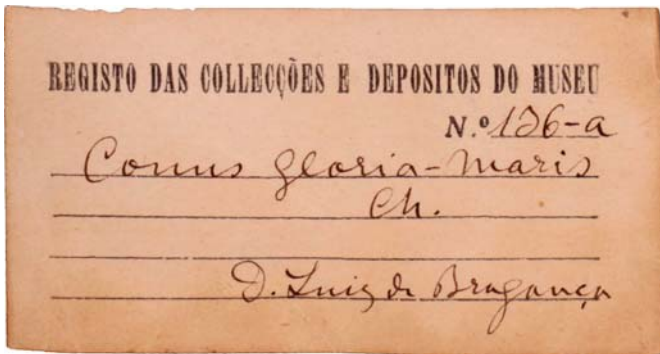 REGISTO DAS COLLECÇÕES E DEPOSITOS DO MUSEU
N.º 136-a
Conus gloria-maris
Ch.
D. Luiz de Bragança